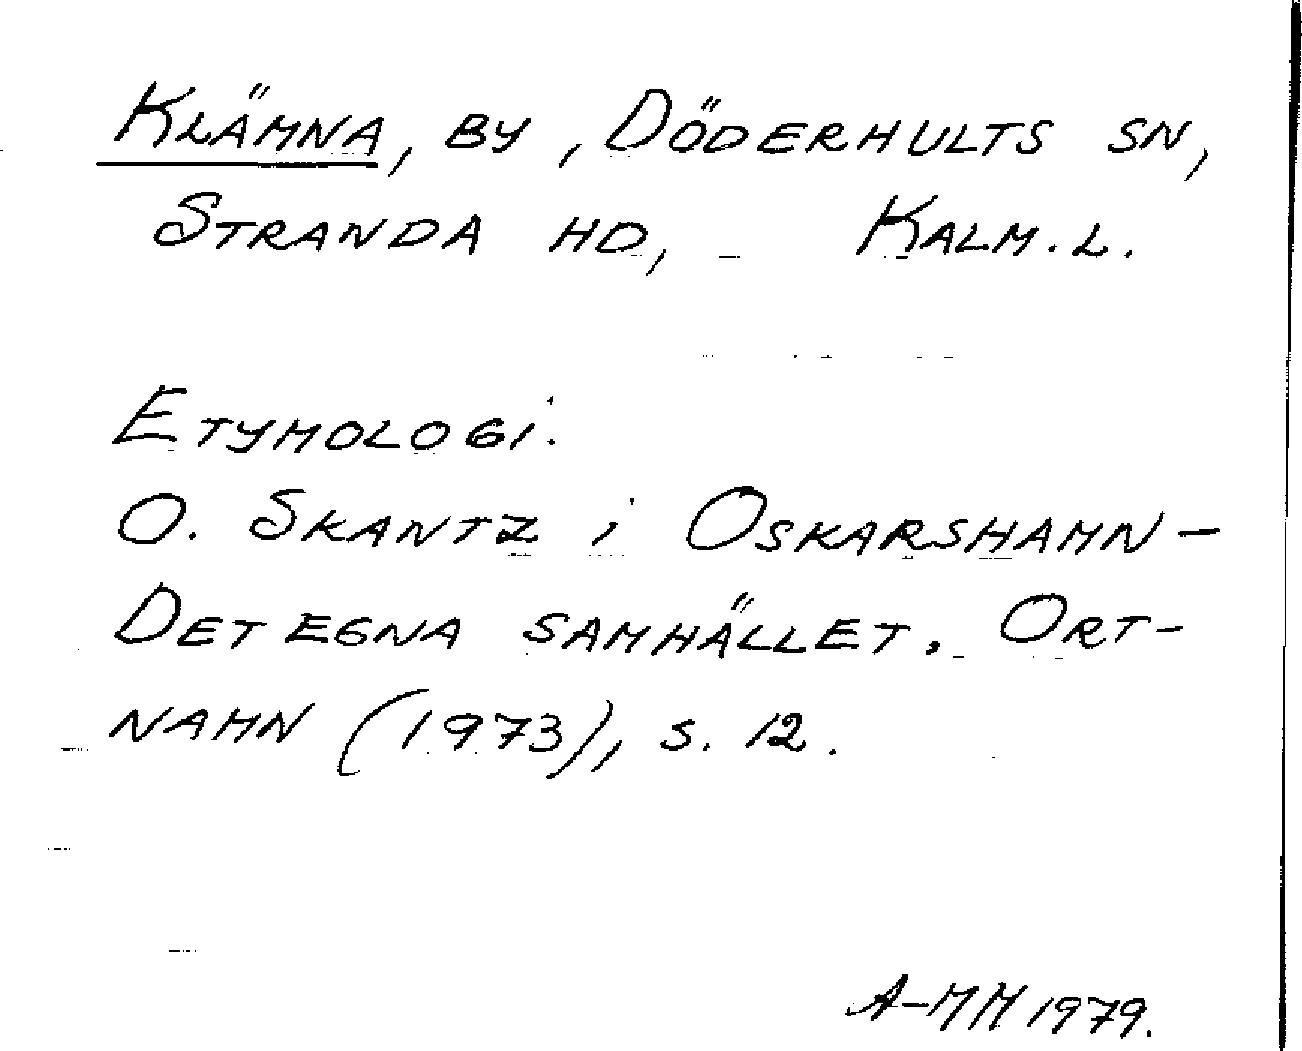 KLÄMNA, BY, DÖDERHULTS SN,
STRANDA HD, KALM. L.
ETYMOLOGI:
O. SKANTZ i OSKARSHAMN -
DET EGNA SAMHÄLLET. ORT-
NAMN (1973), S. 12.
A-MM 1979.